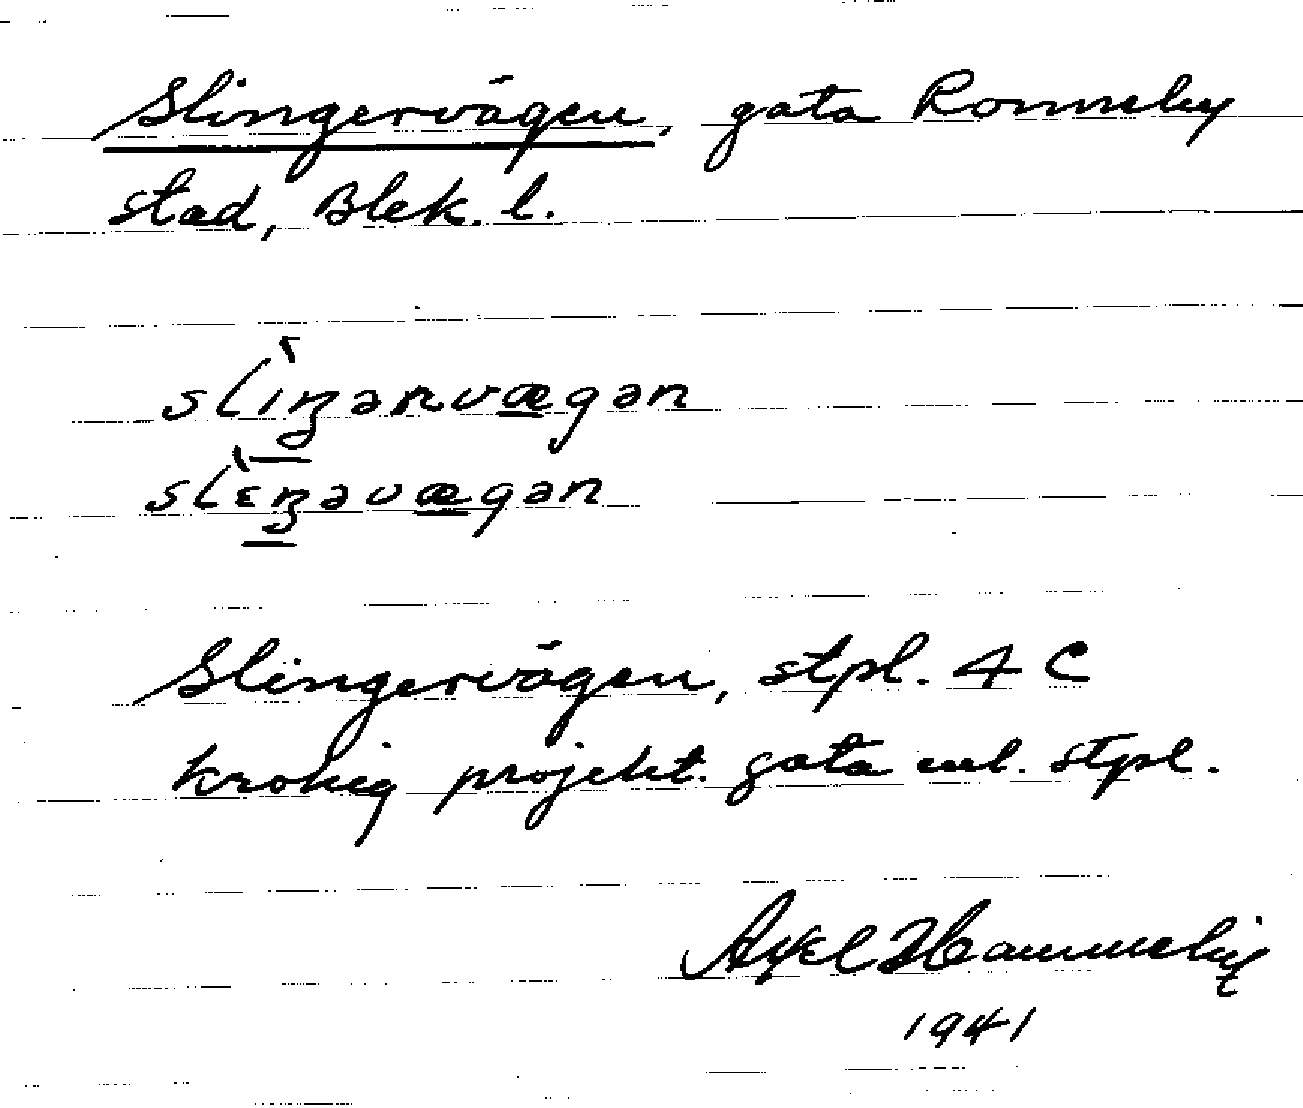 Slingervägen, gata Ronneby
stad, Blek. l.
slìŋərvægən
slɛ̀ŋəvægən
Slingervägen, stpl. 4 C
krokig projekt. gata enl. stpl.
Axel
1941